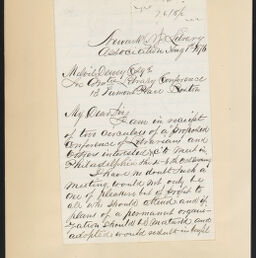 Newark N.J. Library
Association Aug 1st 1876
Melvil Dewey Esqr.
Library Conference
13 Tremont Place Boston
My Dear Sir
I am in receipt
of two circulars of a "proposed
Conference of Librarians and
others interested &c to meet in
Philadelphia
I have no doubt such a
meeting, would not, only be
one of pleasure but of profit to
all who should attend and if
plans of a permanent organi-
zation should be matured and
adopted would result in